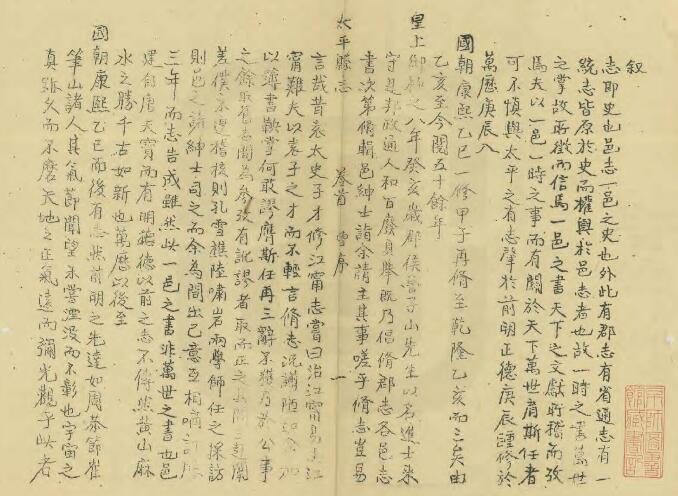 叙
志即史也邑志一邑之史也外此有郡志有省通志有一
統志皆原於史而權輿於邑志者也故一時之書萬世
之掌故所徵而信焉一邑之書天下之文獻所稽而攷
焉夫以一邑一時之事而有關於天下萬世膺斯任者
可不慎與太平之有志肇於前明正德庚辰踵修於
萬厯庚辰入
國朝康熙乙巳一修甲子再脩至乾隆乙亥而三矣由
乙亥至今閱五十餘年
皇上御極之八年癸亥歲郡侯魯子山先生以名進士來
守是邦政通人和百廢具舉既乃倡脩郡志各邑志
書次第脩輯邑紳士詣余請主其事嗟乎脩志豈易
太平縣志 卷首 曹序 一
言哉昔袁太史子才修江甯志嘗曰治江甯易志江
甯難夫以袁子之才而不輕言脩志況謭陋如
以簿書鞅掌何敢謬膺斯任再三辭不獲乃於公事
之餘取舊志閱為參攷有訛謬者取而正之
差僕不遑稽核則孔雪樵陸嘯岩兩學師任之採訪
則邑之諸紳士司之而余為間出己意互相商訂
三年而志告成雖然此一邑之書非萬世之書也邑
自唐天寶而有明德以前之志不傳然黄山麻
水之勝千古如新也萬厯以後至
國朝康熙乙巳而後有志然前明之先達如周恭節崔
筆山諸人其氣節聞望未嘗湮没而不彰也宇宙之
真蹟久而不磨天地之正氣遠而彌光觀乎此者
京師圖書館藏書記